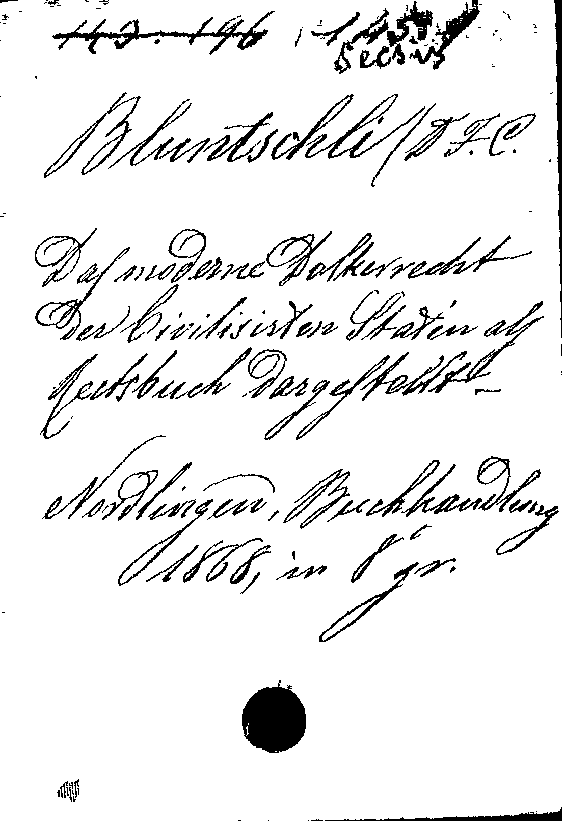 143.196
Bluntschli / D F. C.
Das moderne Volkerrecht
der Civilisirten Staten als
Rechtsbuch dargestellt_
Nordlingen, Buchhandlung
1868, in 8° gr.